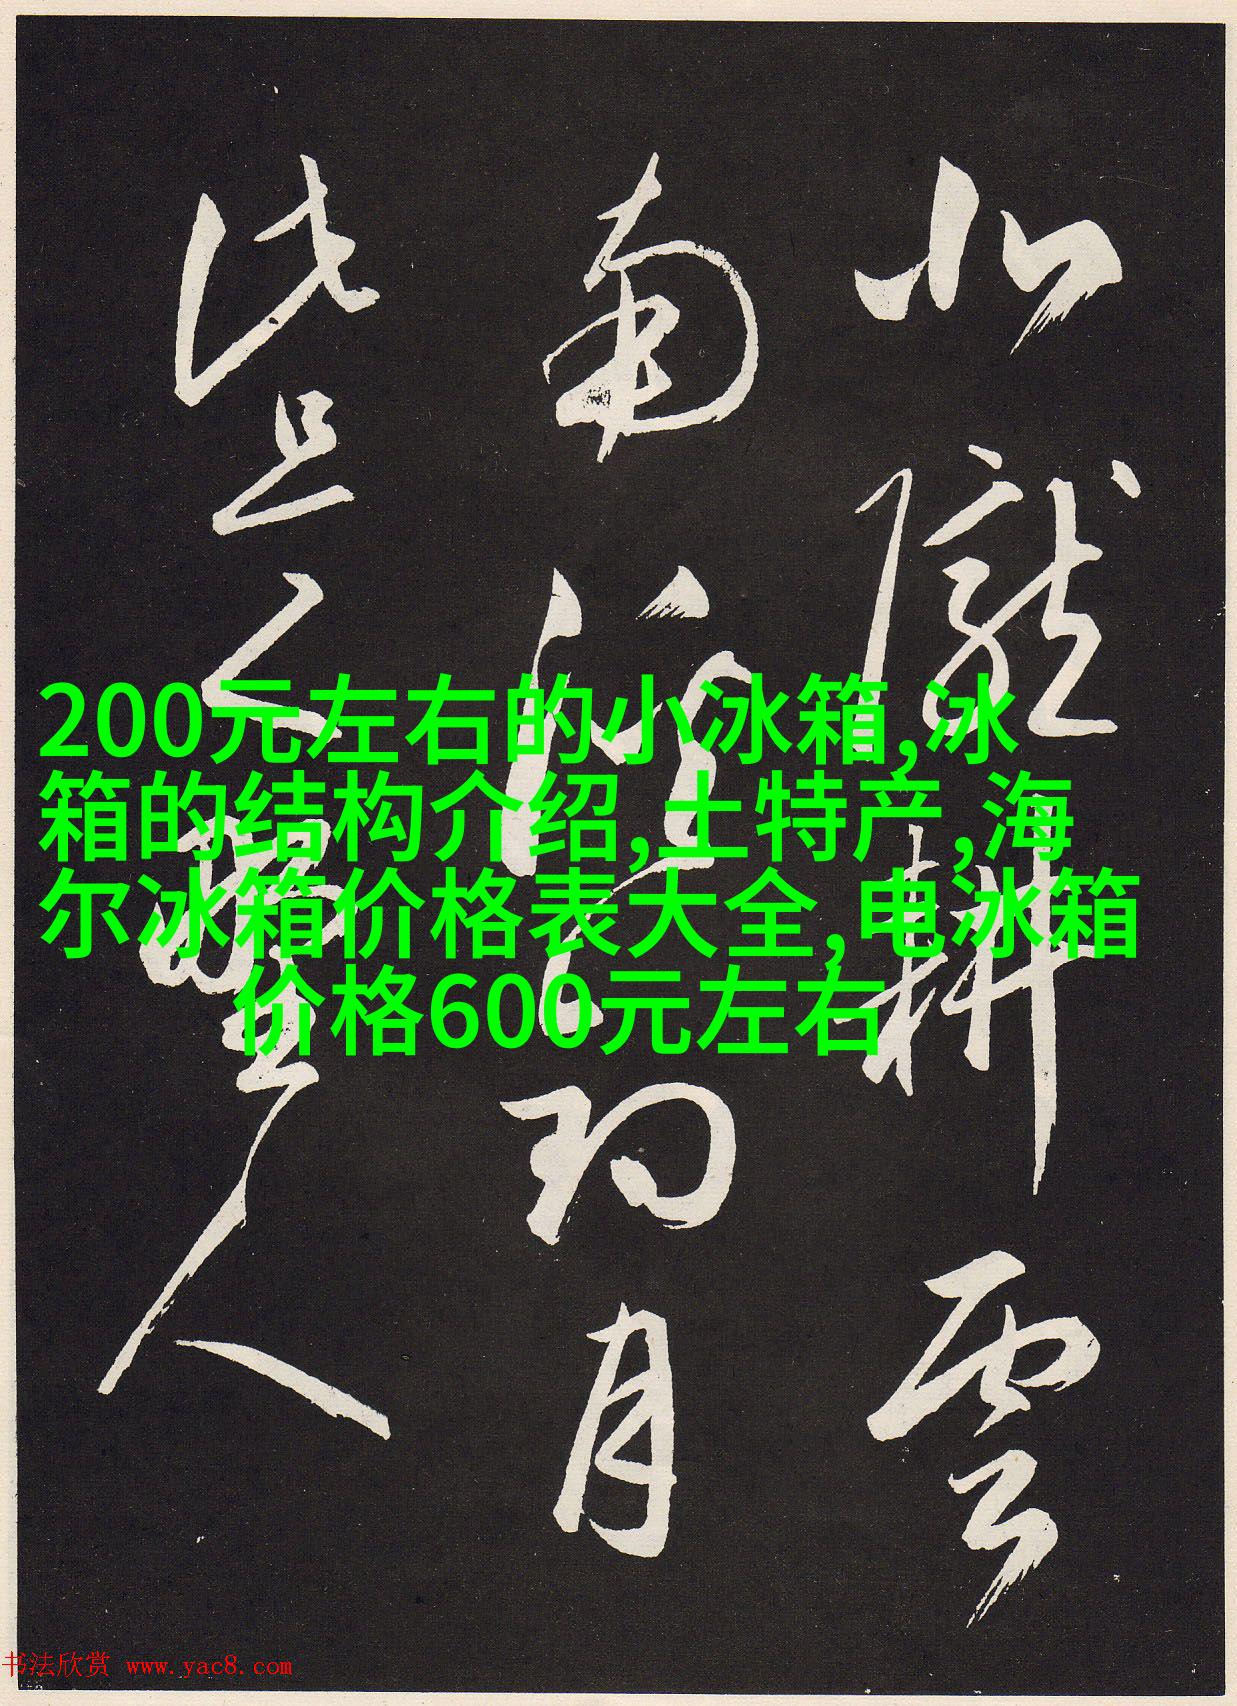 北隴耕雲
南溪釣月
此是野人
200元左右的小冰箱,冰
箱的结构介绍,土特产,海
尔冰箱价格表大全,电冰箱
价格600元左右
书法欣赏 www.yac8.com